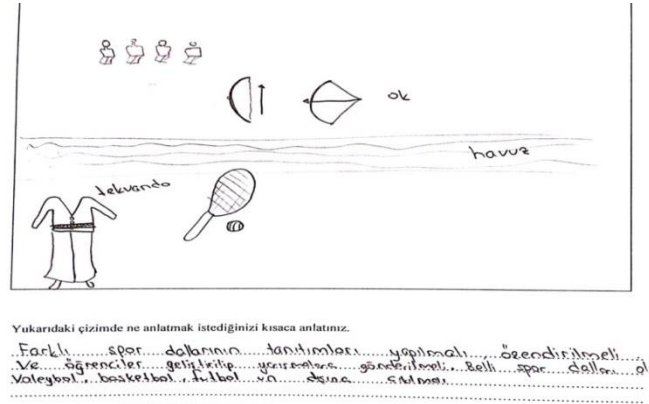 ok
havuz
tekvando
Yukarıdaki çizimde ne anlatmak istediğinizi kısaca anlatınız.
Farklı spor dallarının tanıtımları yapılmalı, özendirilmeli.
Ve öğrenciler geliştirilip yarışmalara gönderilmeli. Belli spor dalları ol
Voleybol, basketbol, futbol un dışına